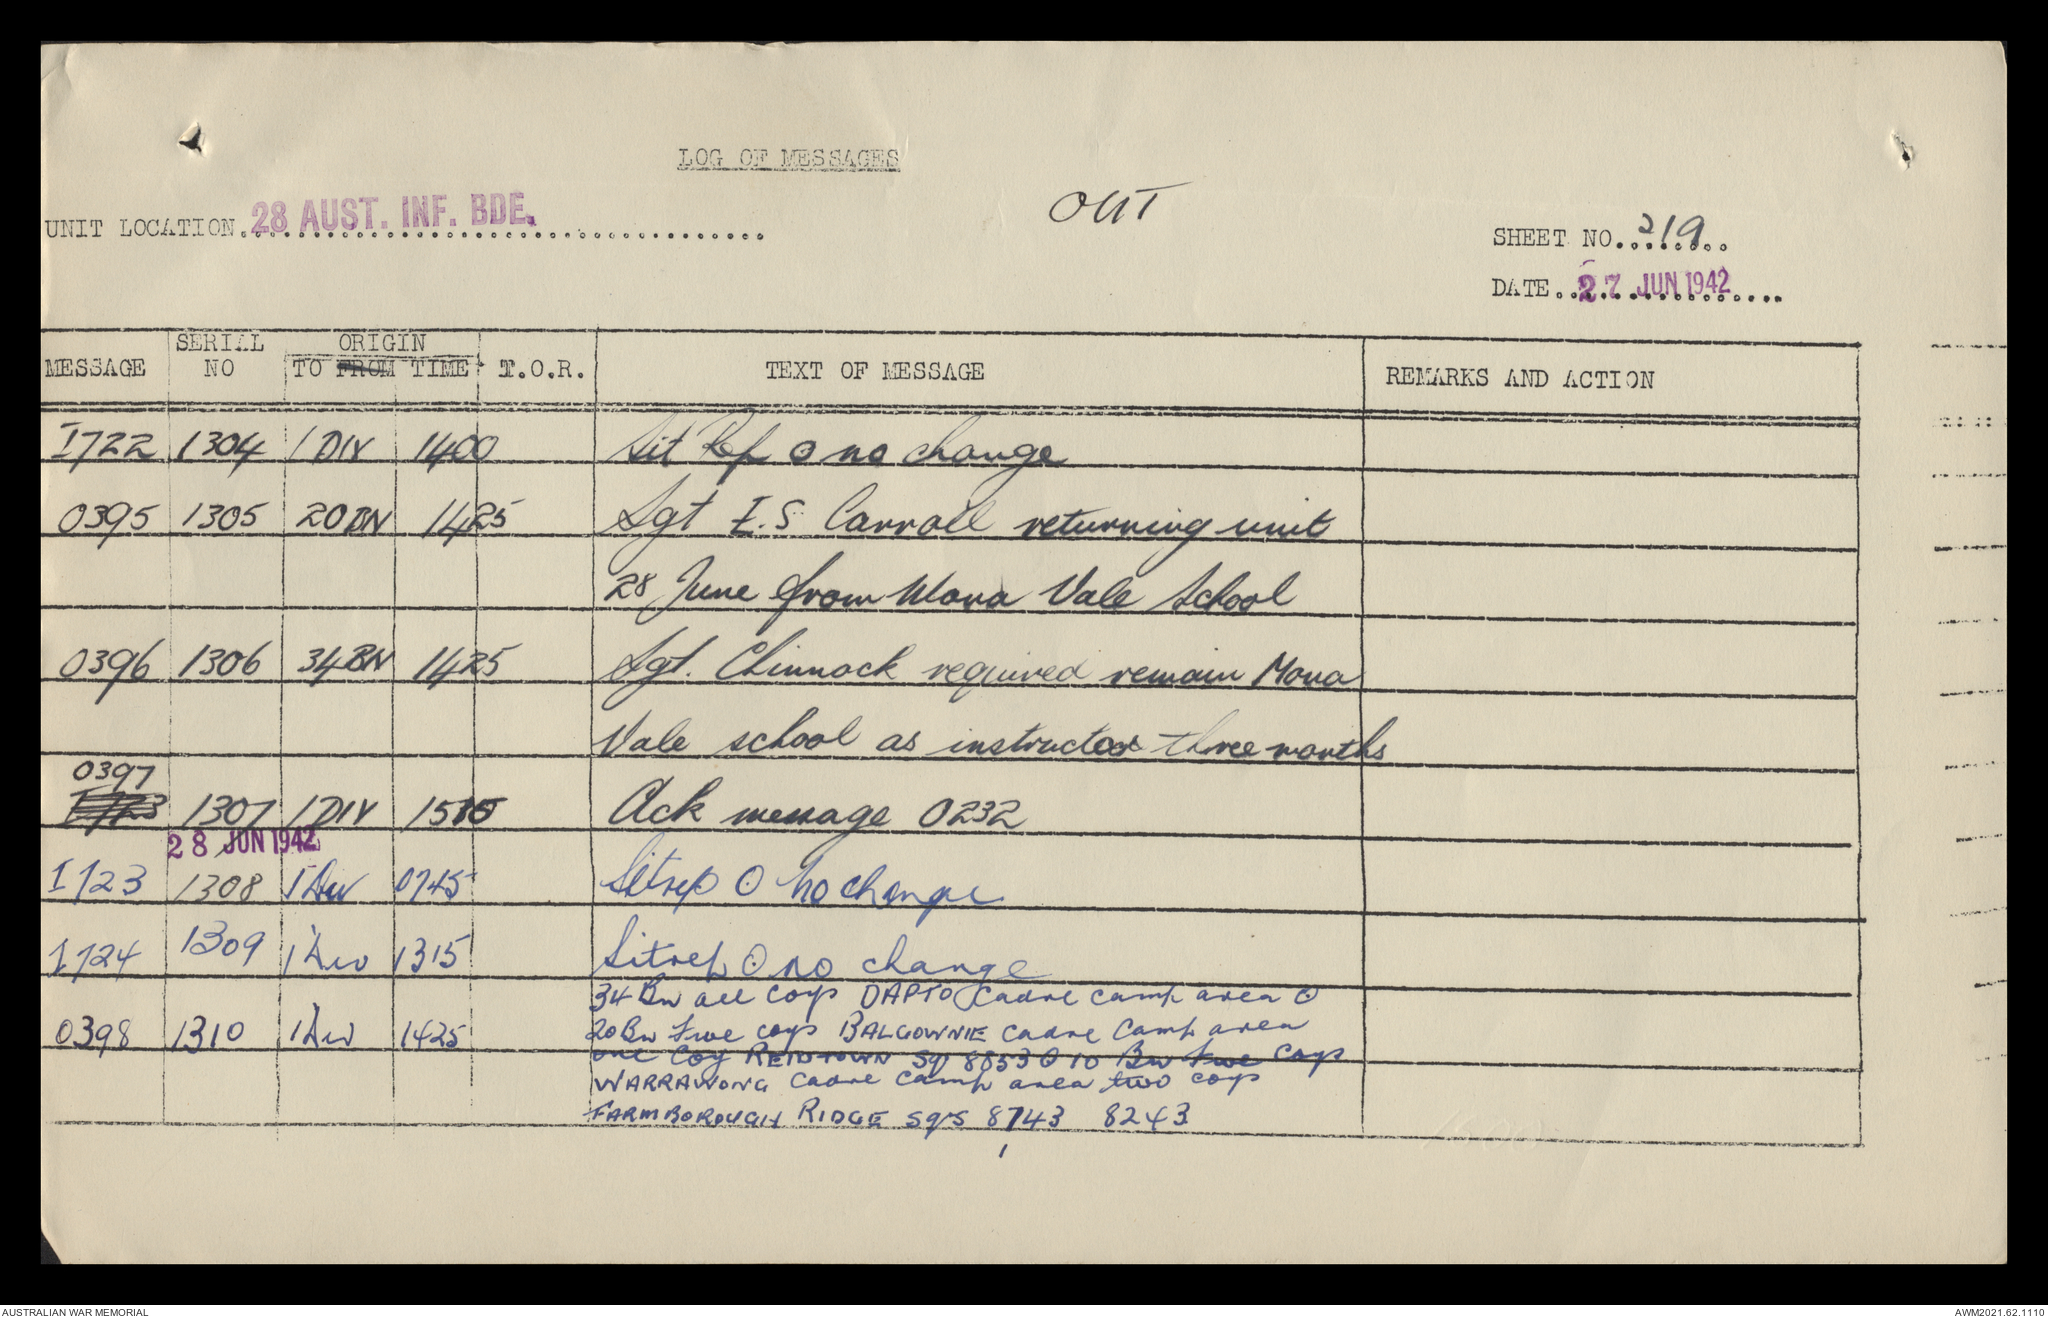 LOG OF MESSAGES
OUT
UNIT LOCATION 28 AUST. INF. BDE.
SHEET NO. 219
DATE 27 JUN 1942
MESSAGE SERIAL NO ORIGIN TO FROM TIME T.O.R. TEXT OF MESSAGE REMARKS AND ACTION
I722 1304 1 DIV 1400 Sit Rep ⊙ no change
0395 1305 20 BN 1425 Sgt E.S. Carroll returning unit
28 June from Mona Vale School
0396 1306 34 BN 1425 Sgt. Chinnock required remain Mona
Vale school as instructor three months
0397
I723 1307 1 DIV 1515 Ack message 0232
28 JUN 1942
I723 1308 1 Div 0745 Sitrep ⊙ no change
I724 1309 1 Div 1315 Sitrep ⊙ no change
34 Bn all coys DAPTO cadre camp area ⊙
0398 1310 1 Div 1425 20 Bn five coys BALGOWNIE cadre camp area
one coy sq 8853 ⊙ 10 Bn five coys
WARRAWONG cadre camp area two coys
FARMBOROUGH RIDGE sqs 8743 8243
AUSTRALIAN WAR MEMORIAL
AWM2021.62.1110